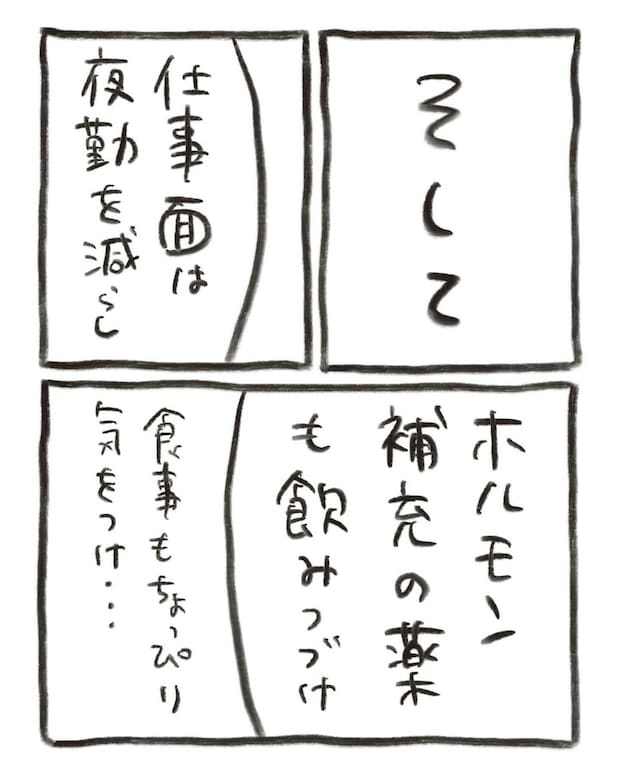 そして
仕事面は
夜勤を減らし
ホルモン
補充の薬
も飲みつづけ
食事もちょっぴり
気をつけ・・・